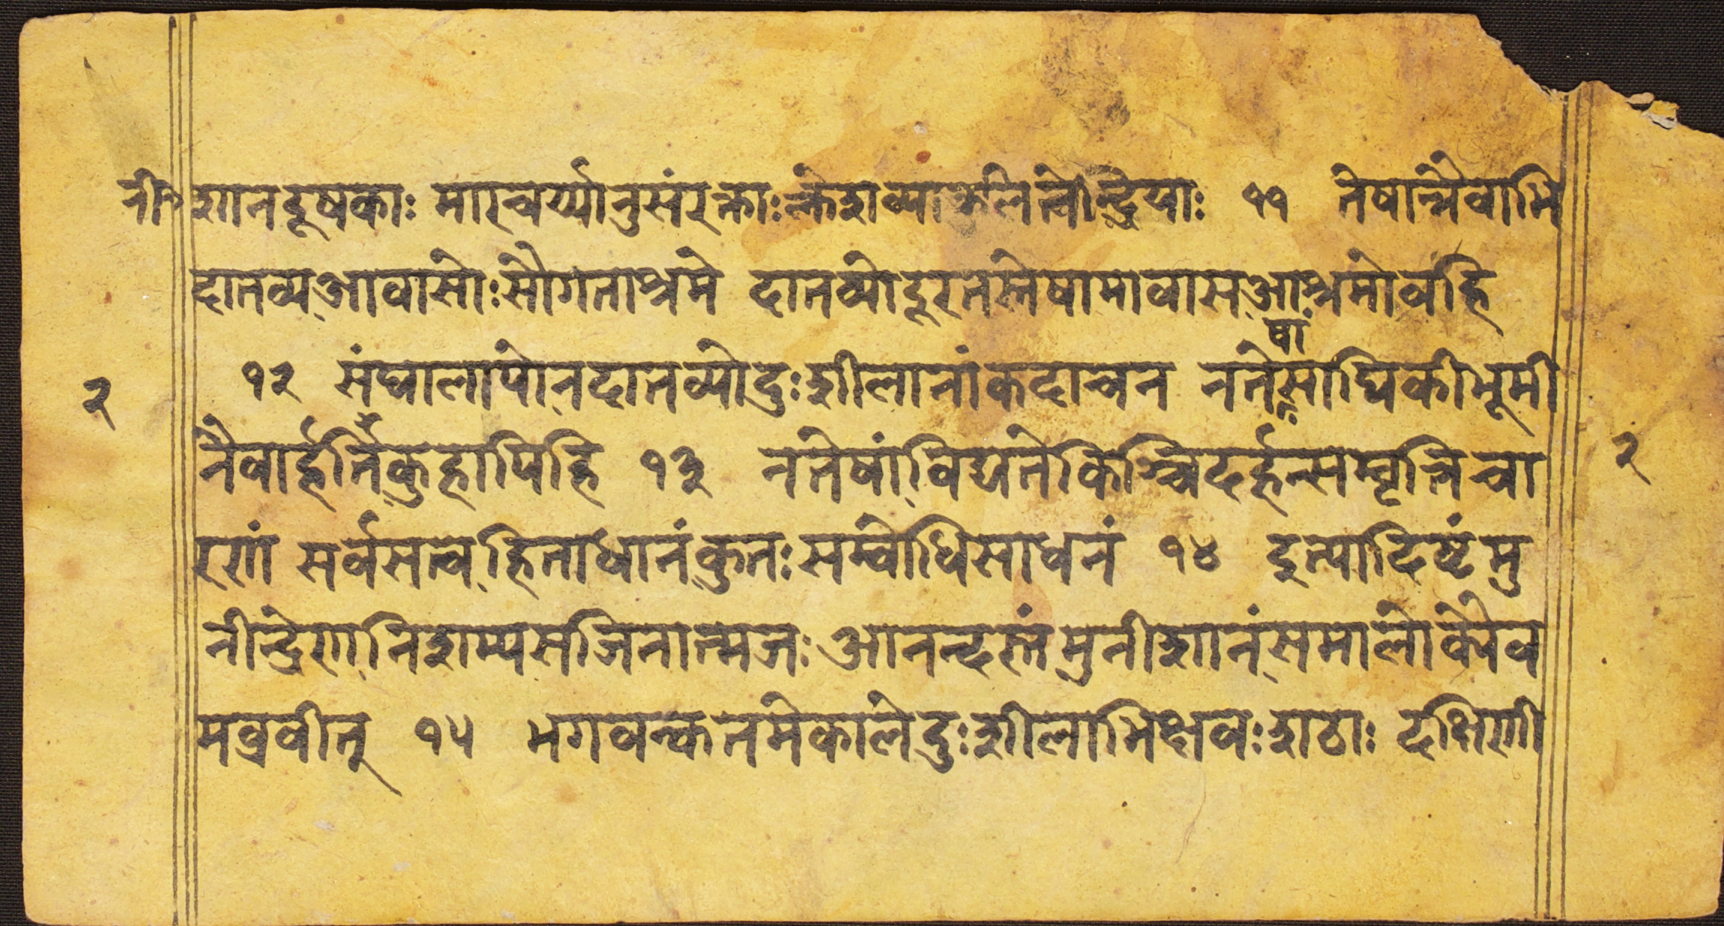 नी शानदूषकाः मारचर्य्यानुसंरक्ताः क्लेशव्याकुलितेन्द्रियाः ११ तेषान्नैवाभि
दातव्य आवासोः सौगताश्रमे दातव्यो दूरतस्तेषामावास आश्रमो वहि
१२ संघालापो न दातव्यो दुःशीलानां कदाचन न तेषां साघिकी भूमी
२
नैवार्हर्ति कुहापि हि १३ न तेषां विद्यते किञ्चिदर्हत्सम्वृत्तिचा
२
रणं सर्वसत्वहिताधानं कुतः सम्वोधिसाधनं १४ इत्यादिष्टं मु
नीन्द्रेण निशम्य स जिनात्मजः आनन्दस्तं मुनीशानं समालोक्यैव
मव्रवीत् १५ भगवन्कतमे काले दुःशीला भिक्षवः शठाः दक्षिणी